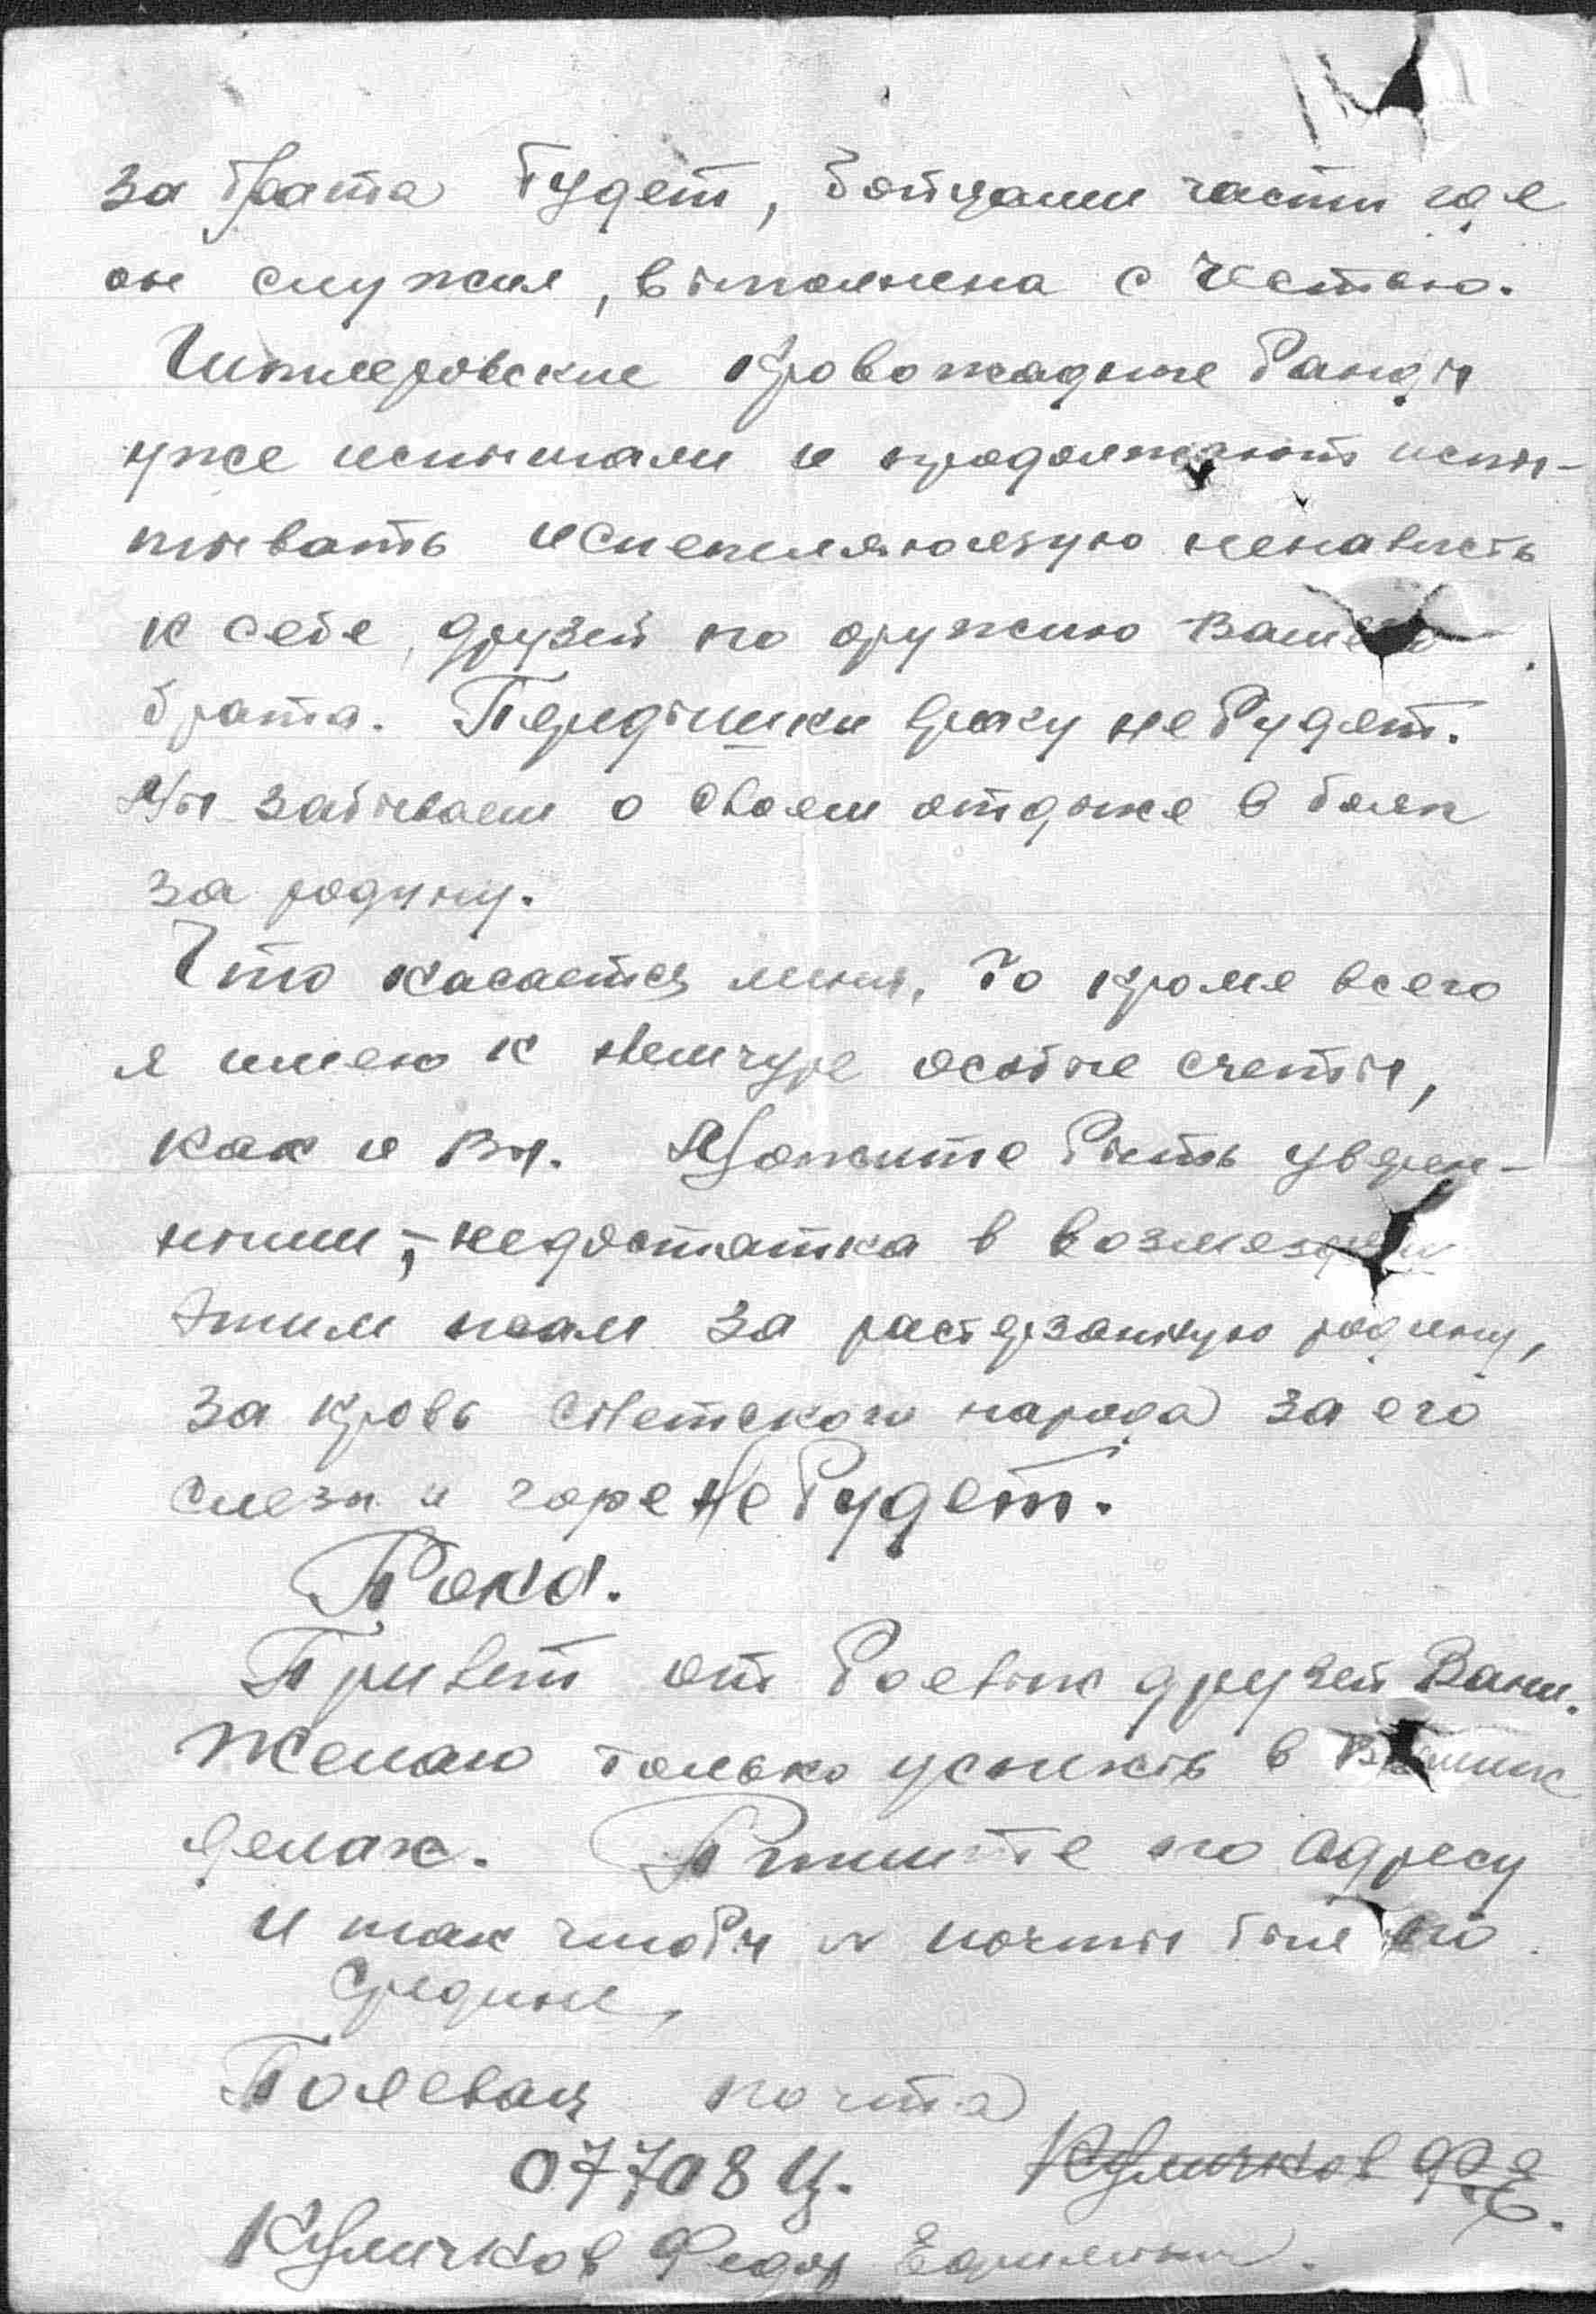 за брата будет, бойцами части где
он служил, выполнена с честью.
Гитлеровские кровожадные банды
уже испытали и продолжают испы-
тывать испепеляющую ненависть
к себе, друзей по оружию Вашего
брата. Передышки врагу не будет.
Мы забываем о своем отдыхе в боях
за родину.
Что касается меня, то кроме всего
я имею к немчуре особые счеты,
как и Вы. Можите быть уверен-
ными, – недостатка в возмездии
этим псам за растерзанную родину,
за кровь советского народа за его
слезы и горе не будет.
Пока.
Привет от боевых друзей Вани.
Желаю только успехов в Ваших
делах. Пишите по адресу
и так чтобы почты был по
средине,
Полевая почта
07708 Ц.
Куличков Федор